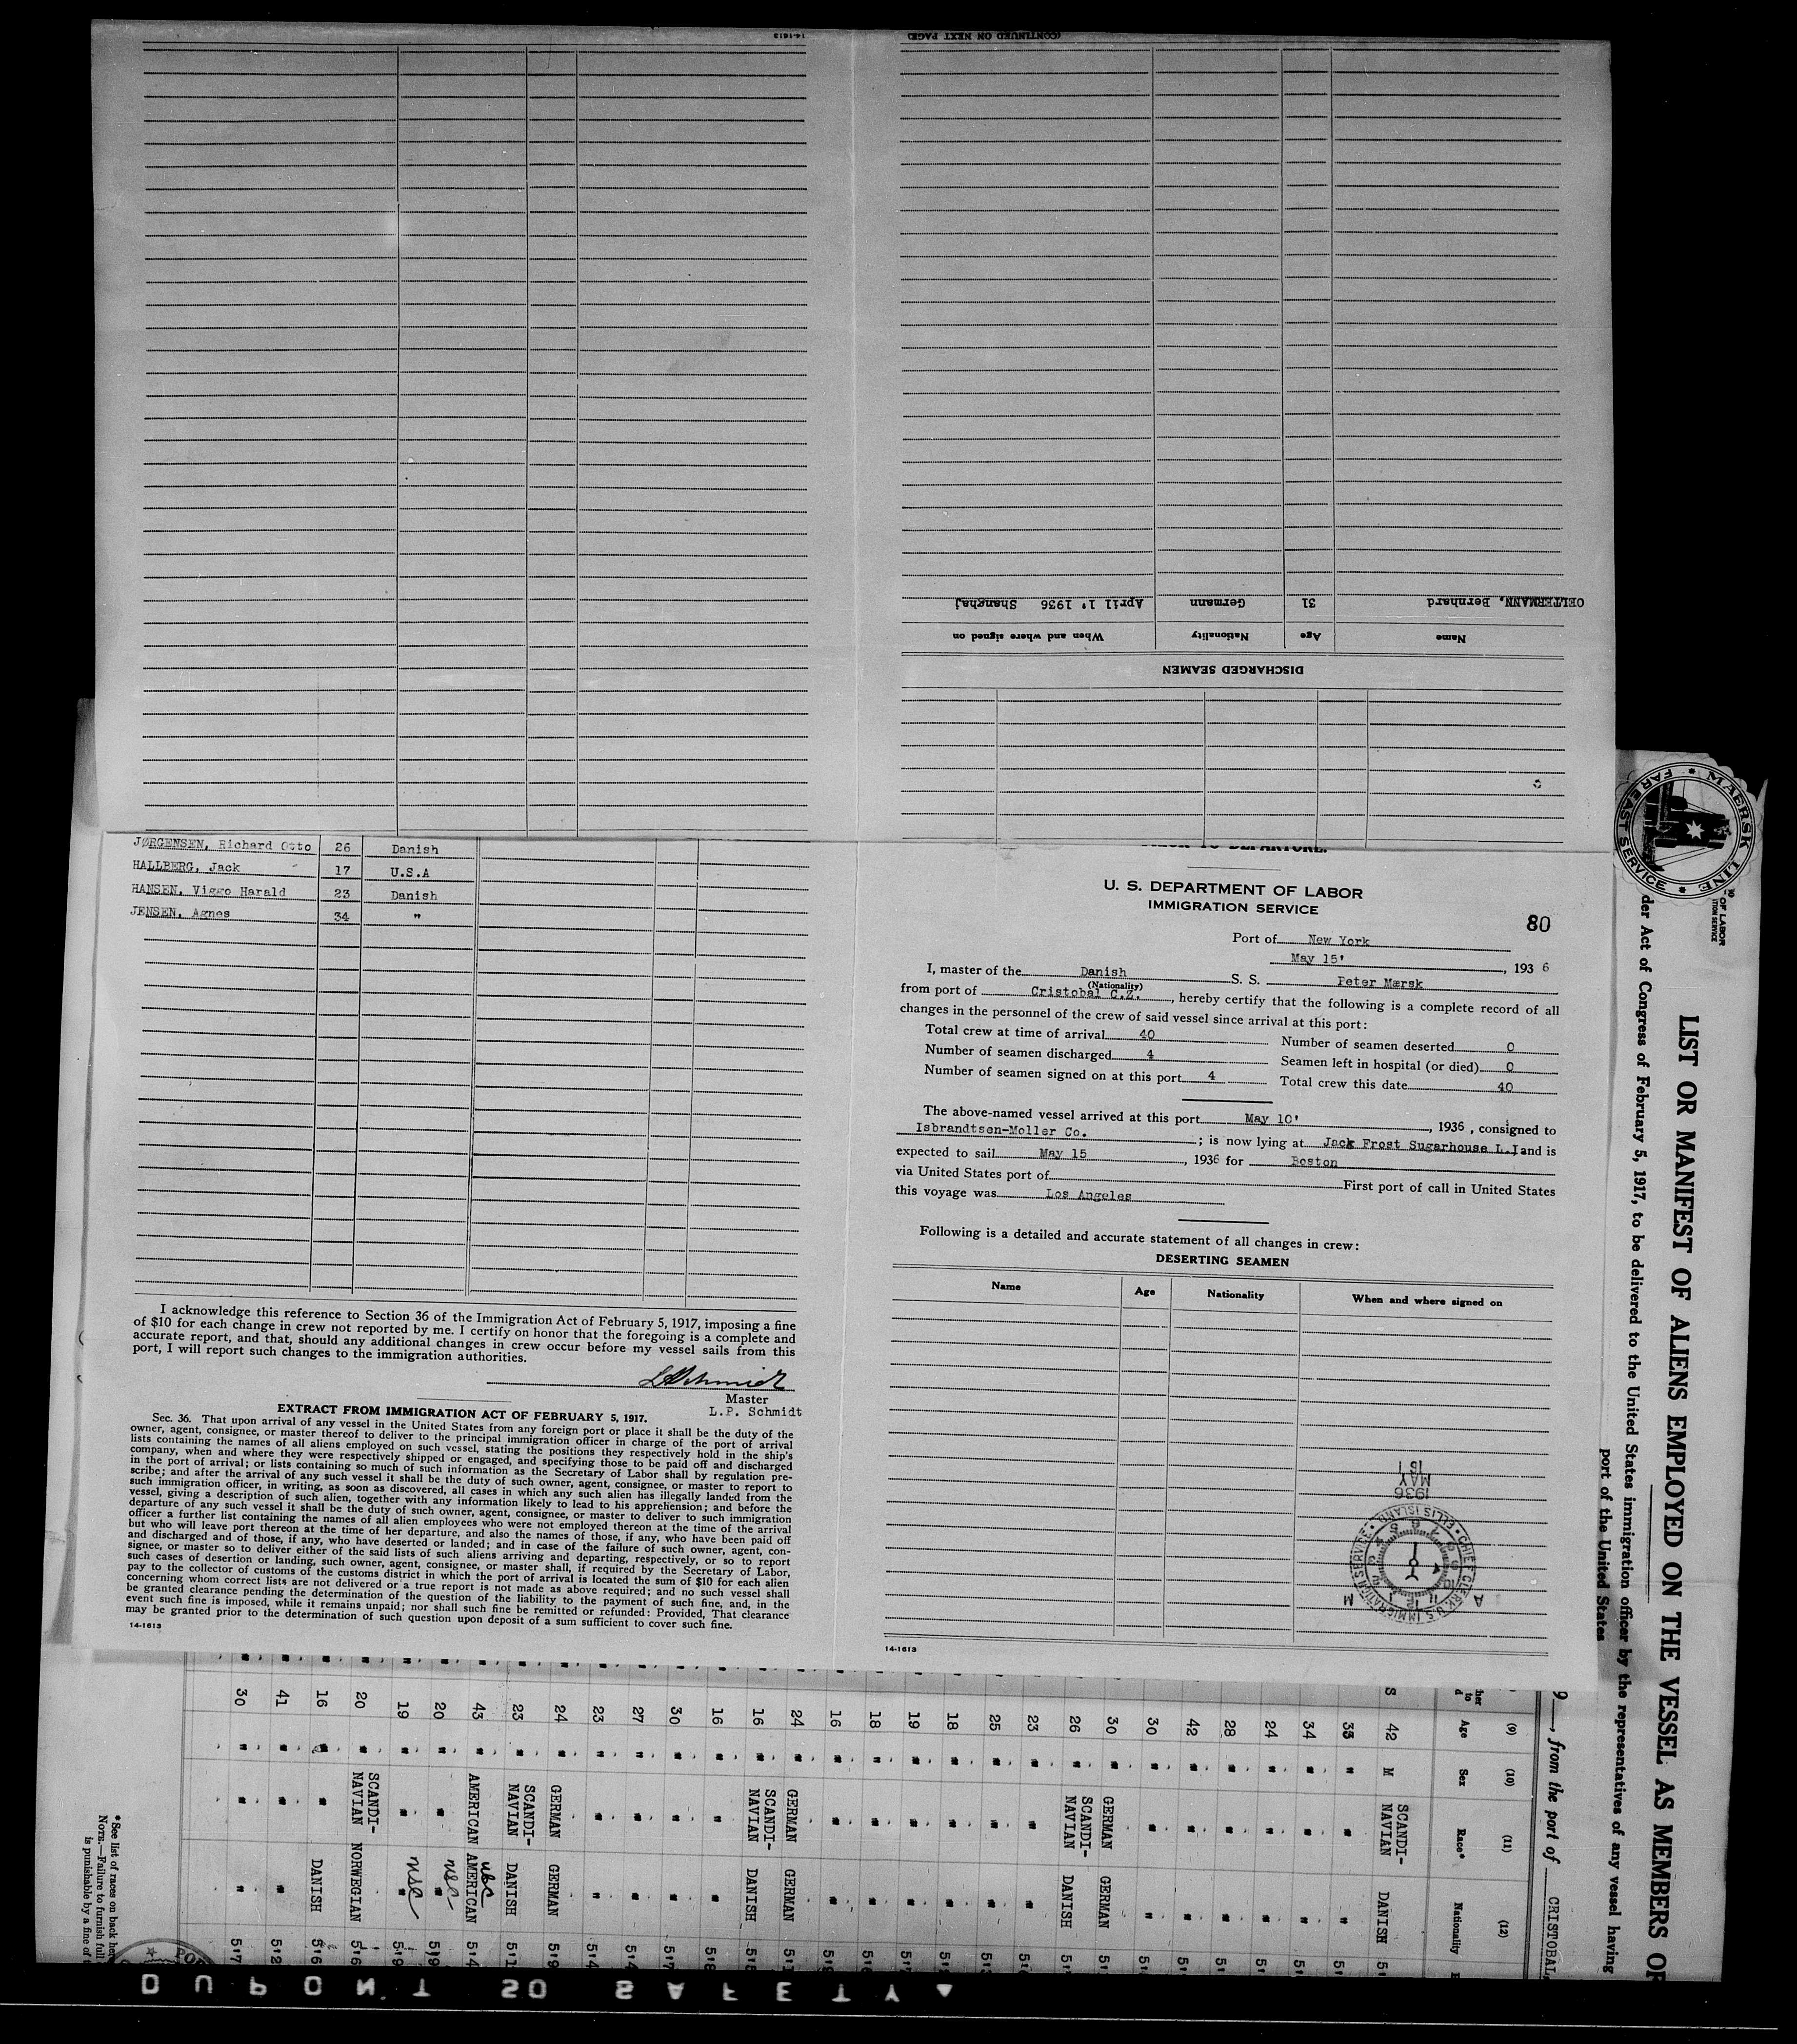 14-1613
(CONTINUED ON NEXT PAGE)
OELTERMANN, Bernhard 31 Germann April 1' 1936 Shanghaj
Name Age Nationality When and where signed on
DISCHARGED SEAMEN
JØRGENSEN, Richard Otto 26 Danish
HALLBERG, Jack 17 U.S.A
HANSEN, Viggo Harald 23 Danish
JENSEN, Agnes 34 "
I acknowledge this reference to Section 36 of the Immigration Act of February 5, 1917, imposing a fine
of $10 for each change in crew not reported by me. I certify on honor that the foregoing is a complete and
accurate report, and that, should any additional changes in crew occur before my vessel sails from this
port, I will report such changes to the immigration authorities.
LPSchmidt
Master
L.P. Schmidt
EXTRACT FROM IMMIGRATION ACT OF FEBRUARY 5, 1917.
Sec. 36. That upon arrival of any vessel in the United States from any foreign port or place it shall be the duty of the
owner, agent, consignee, or master thereof to deliver to the principal immigration officer in charge of the port of arrival
lists containing the names of all aliens employed on such vessel, stating the positions they respectively hold in the ship's
company, when and where they were respectively shipped or engaged, and specifying those to be paid off and discharged
in the port of arrival; or lists containing so much of such information as the Secretary of Labor shall by regulation pre-
scribe; and after the arrival of any such vessel it shall be the duty of such owner, agent, consignee, or master to report to
such immigration officer, in writing, as soon as discovered, all cases in which any such alien has illegally landed from the
vessel, giving a description of such alien, together with any information likely to lead to his apprehension; and before the
departure of any such vessel it shall be the duty of such owner, agent, consignee, or master to deliver to such immigration
officer a further list containing the names of all alien employees who were not employed thereon at the time of the arrival
but who will leave port thereon at the time of her departure, and also the names of those, if any, who have been paid off
and discharged and of those, if any, who have deserted or landed; and in case of the failure of such owner, agent, con-
signee, or master so to deliver either of the said lists of such aliens arriving and departing, respectively, or so to report
such cases of desertion or landing, such owner, agent, consignee, or master shall, if required by the Secretary of Labor,
pay to the collector of customs of the customs district in which the port of arrival is located the sum of $10 for each alien
concerning whom correct lists are not delivered or a true report is not made as above required; and no such vessel shall
be granted clearance pending the determination of the question of the liability to the payment of such fine, and, in the
event such fine is imposed, while it remains unpaid; nor shall such fine be remitted or refunded: Provided, That clearance
may be granted prior to the determination of such question upon deposit of a sum sufficient to cover such fine.
14-1613
U. S. DEPARTMENT OF LABOR
IMMIGRATION SERVICE
80
Port of New York
May 15' , 193 6
I, master of the Danish S. S. Peter Mærsk
(Nationality)
from port of Cristobal C.Z. , hereby certify that the following is a complete record of all
changes in the personnel of the crew of said vessel since arrival at this port:
Total crew at time of arrival 40 Number of seamen deserted 0
Number of seamen discharged 4 Seamen left in hospital (or died) 0
Number of seamen signed on at this port 4 Total crew this date 40
The above-named vessel arrived at this port May 10' , 1936 , consigned to
Isbrandtsen-Moller Co. ; is now lying at Jack Frost Sugarhouse L.I and is
expected to sail May 15 , 1936 for Boston
via United States port of First port of call in United States
this voyage was Los Angeles
Following is a detailed and accurate statement of all changes in crew:
DESERTING SEAMEN
Name Age Nationality When and where signed on
1936
MAY
CHIEF CLERK U.S. IMMIGRATION SERVICE ELLIS ISLAND
A M
14-1613
MAERSK LINE
FAR EAST SERVICE
OF LABOR
LIST OR MANIFEST OF ALIENS EMPLOYED ON THE VESSEL AS MEMBERS OF
der Act of Congress of February 5, 1917, to be delivered to the United States immigration officer by the representatives of any vessel having
port of the United States
9 , from the port of CRISTOBAL,
(9) (10) (11) (12)
Age Sex Race* Nationality
S 42 M SCANDI-NAVIAN DANISH
33 " " "
34 " " "
24 " " "
28 " " "
42 " " "
30 " " "
30 " GERMAN GERMAN
26 " SCANDI-NAVIAN DANISH
23 " " "
25 " " "
18 " " "
19 " " "
18 " " "
16 " " "
24 " GERMAN GERMAN
16 " SCANDI-NAVIAN DANISH
16 " " "
30 " " "
27 " " "
23 " " "
24 " GERMAN GERMAN
23 " SCANDI-NAVIAN DANISH
43 " AMERICAN AMERICAN usc
20 " " " usc
19 " " " usc
20 " SCANDI-NAVIAN NORWEGIAN
16 " " DANISH
41 " " "
30 " " "
*See list of races on back
NOTE.—Failure to furnish full
is punishable by a fine of
DUPONT SO SAFETY